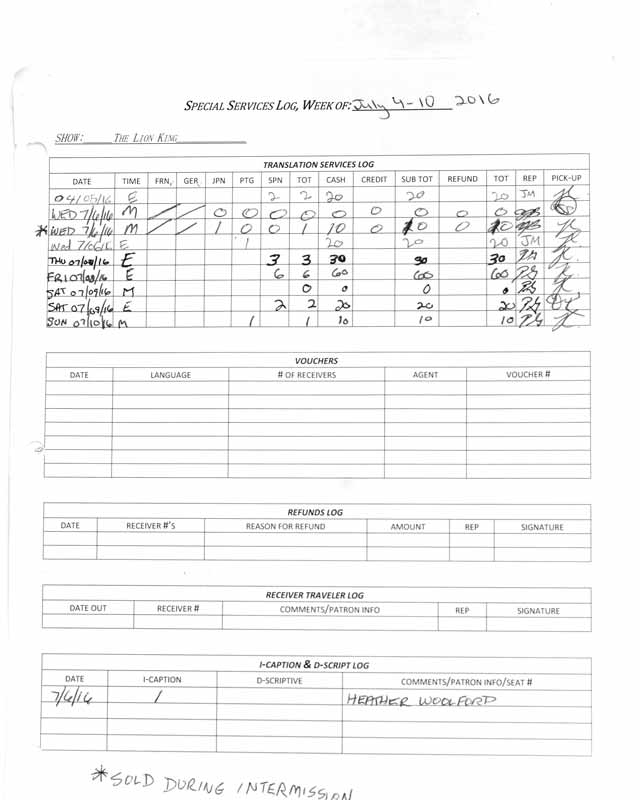 SPECIAL SERVICES LOG, WEEK OF: July 4-10 2016
SHOW: THE LION KING
TRANSLATION SERVICES LOG
DATE TIME FRN, GER JPN PTG SPN TOT CASH CREDIT SUB TOT REFUND TOT REP PICK-UP
04/05/16 E 2 2 20 20 20 JM
WED 7/6/16 M / / 0 0 0 0 0 0 0 0 0
* WED 7/6/16 M / / 1 0 0 1 10 0 10 0 10
Wed 7/06/16 E 1 20 20 20 JM
THU 07/08/16 E 3 3 30 30 30
FRI 07/08/16 E 6 6 60 60 60
SAT 07/09/16 M 0 0 0 0
SAT 07/09/16 E 2 2 20 20 20
SUN 07/10/16 M 1 1 10 10 10
VOUCHERS
DATE LANGUAGE # OF RECEIVERS AGENT VOUCHER #
REFUNDS LOG
DATE RECEIVER #'S REASON FOR REFUND AMOUNT REP SIGNATURE
RECEIVER TRAVELER LOG
DATE OUT RECEIVER # COMMENTS/PATRON INFO REP SIGNATURE
I-CAPTION & D-SCRIPT LOG
DATE I-CAPTION D-SCRIPTIVE COMMENTS/PATRON INFO/SEAT #
7/6/16 1 HEATHER WOOLFORD
* SOLD DURING INTERMISSION